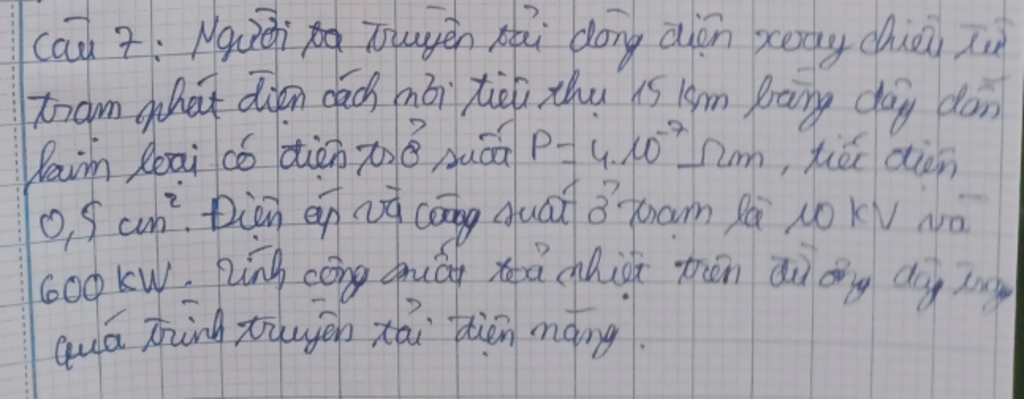 Câu 7: Người ta truyền tải dòng điện xoay chiều từ
trạm phát điện cách nơi tiêu thụ 15 km bằng dây dẫn
kim loại có điện trở suất P = 4.10⁻⁷ Ωm, tiết diện
0,5 cm². Điện áp và công suất ở trạm là 10 KV và
600 KW. Tính công suất toả nhiệt trên đường dây trong
quá trình truyền tải điện năng.